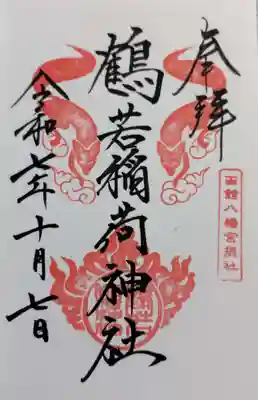 奉拝
函館八幡宮摂社
鶴若稲荷神社
令和七年十月七日